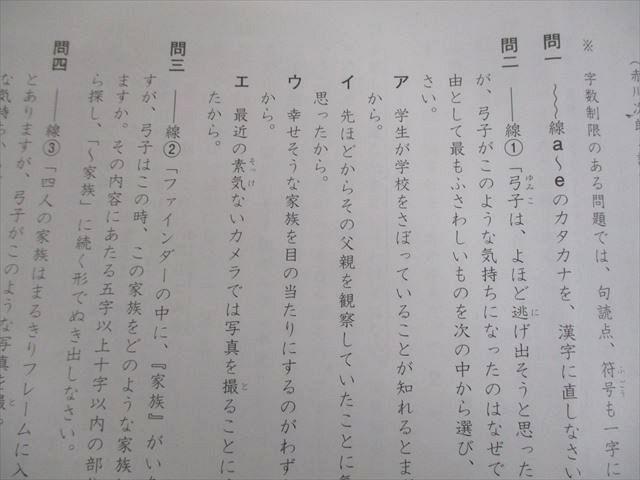 (赤川次郎
※ 字数制限のある問題では、句読点、符号も一字に
問一 〜〜線a〜eのカタカナを、漢字に直しなさい
問二 ――線①「弓子は、よほど逃げ出そうと思った
が、弓子がこのような気持ちになったのはなぜで
由として最もふさわしいものを次の中から選び、
さい。
ア 学生が学校をさぼっていることが知れるとま
から。
イ 先ほどからその父親を観察していたことに気
思ったから。
ウ 幸せそうな家族を目の当たりにするのがわず
から。
エ 最近の素気ないカメラでは写真を撮ることに
たから。
問三 ――線②「ファインダーの中に、『家族』がい
すが、弓子はこの時、この家族をどのような家族
ますか。その内容にあたる五字以上十字以内の部
ら探し、「〜家族」に続く形でぬき出しなさい。
問四 ――線③「四人の家族はまるきりフレームに入
とありますが、弓子がこのような写真を撮
な気持ち